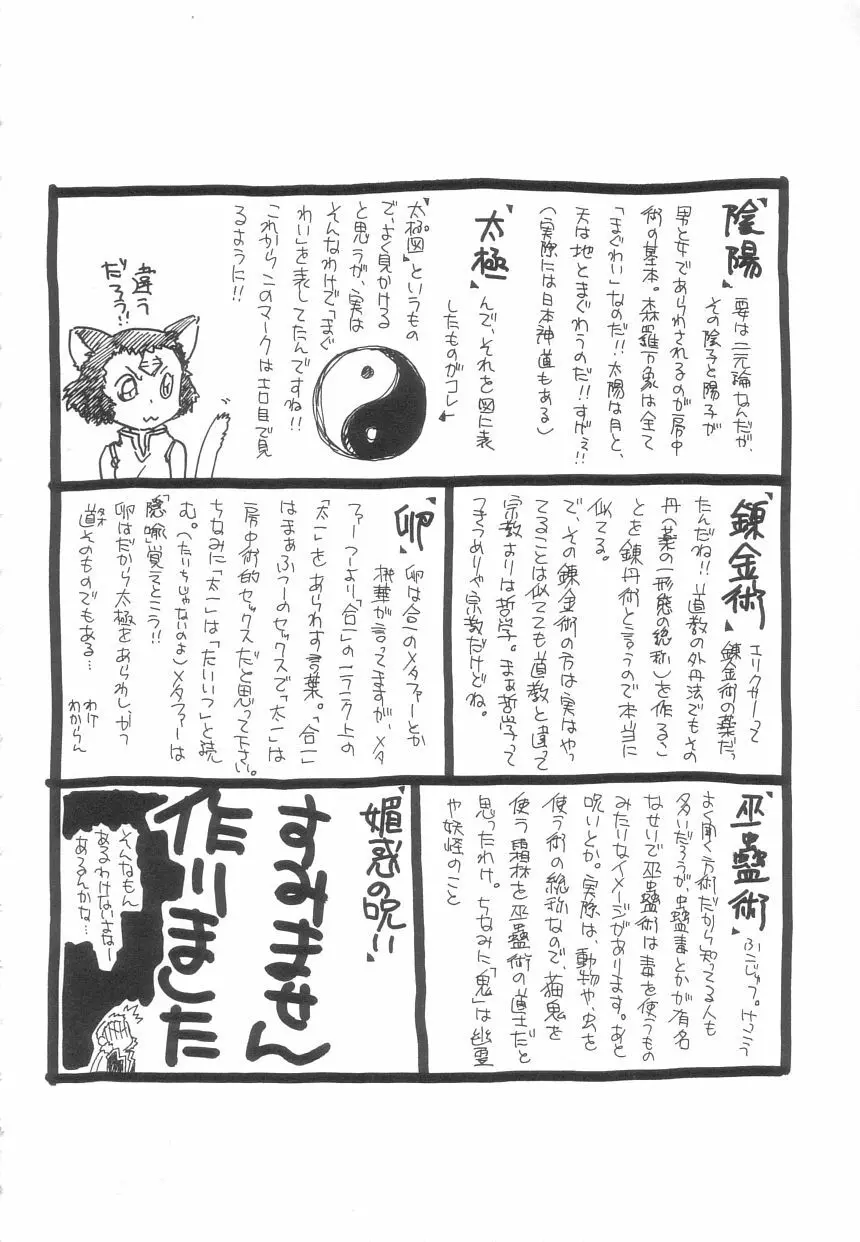 『陰陽』
要は二元論なんだが、
その陰子と陽子が
男と女であらわされるのが房中
術の基本。森羅万象は全て
「まぐわい」なのだ!!太陽は月と、
天は地とまぐわうのだ!!すげぇ!!
(実際には日本神道もある)
『太極』
んで、それを図に表
したものがコレ
『太極図』というもの
で、よく見かける
と思うが、実は
そんなわけで「まぐ
わい」を表してたんですね!!
これからこのマークはエロ目で見
るように!!
違う
だろう!!
『錬金術』
エリクサーって
錬金術の薬だっ
たんだね!!道教の外丹法でもその
丹(薬の一形態の総称)を作るこ
とを錬丹術と言うので本当に
似てる。
で、その錬金術の方は実はやっ
てることは似てても道教と違って
宗教よりは哲学。まぁ哲学って
つきつめりゃ宗教だけどね。
『卵』
卵は合一のメタファーとか
桃華が言ってますが、メタ
ファーつーより「合一」の一ランク上の
「太一」をあらわす言葉。「合一」
はまぁふつーのセックスで、「太一」は
房中術的セックスだと思って下さい。
ちなみに「太一」は「たいいつ」と読
む。(たいちじゃないのよ)メタファーは
「隠喩」覚えとこう!!
卵はだから太極をあらわしかつ
道そのものでもある…
タオ
わけ
わからん
『巫蠱術』
ふこじゅつ。けっこう
よく聞く方術だから知ってる人も
多いだろうが、虫蠱毒とかが有名
なせいで巫蠱術は毒を使うもの
みたいなイメージがあります。あと
呪いとか。実際は、動物や、虫を
使う術の総称なので、猫鬼を
使う霜林を巫蠱術の道士だと
思ったわけ。ちなみに「鬼」は幽霊
や妖怪のこと
『媚惑の呪』
すみません
作りました
そんなもん
あるわけないさなー
あるんかな…